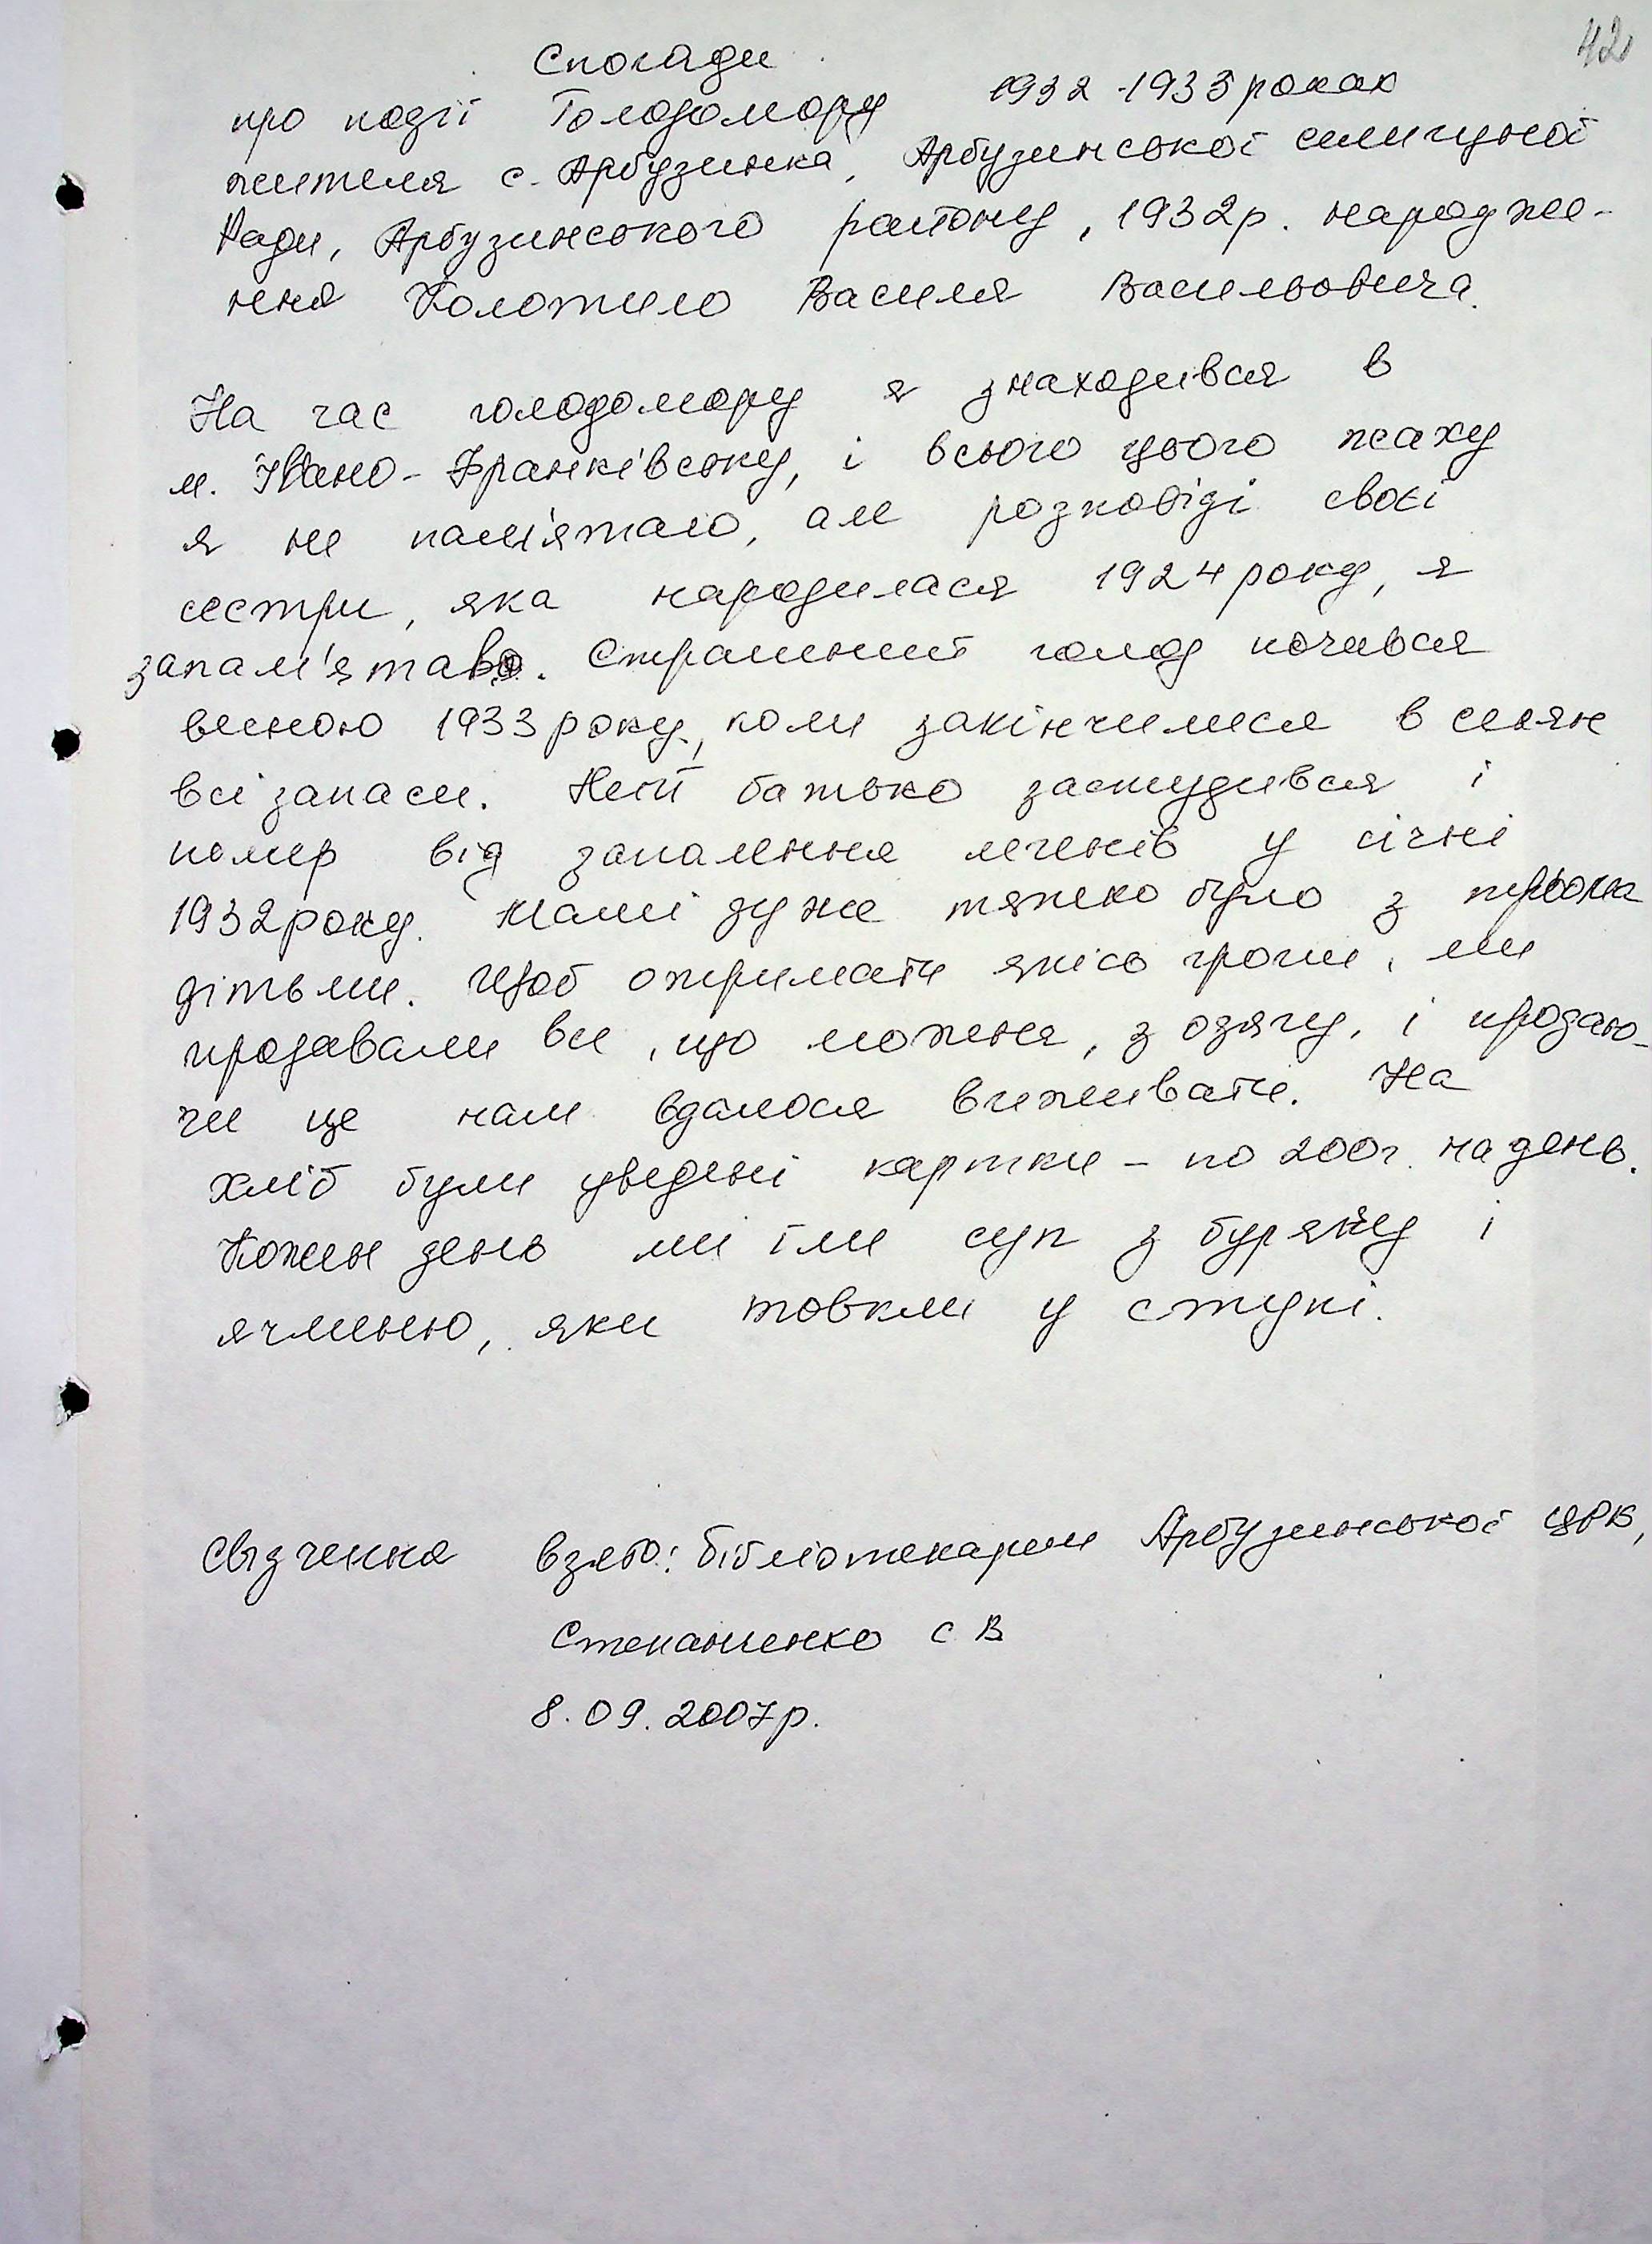 42
Спогади
про події Голодомору 1932-1933 роках
жителя с. Арбузинка, Арбузинської селищної
Ради, Арбузинського району, 1932р. народже-
ння Коломийло Василя Васильовича.
На час голодомору я знаходився в
м. Івано-Франківську, і всього цього жаху
я не пам'ятаю, але розповіді своєї
сестри, яка народилася 1924 року, я
запам'ятав. Страшний голод почався
весною 1933 року, коли закінчилися в селян
всі запаси. Мій батько застудився і
помер від запалення легенів у січні
1932 року. Мамі дуже тяжко було з трьома
дітьми. Щоб отримати якісь гроші, ми
продавали все, що можна, з одягу, і продаю-
чи це нам вдалося виживати. На
хліб були уведені картки - по 200г. на день.
Кожен день ми їли суп з буряку і
ячменю, яки товкли у ступі.
Свідчення взято: бібліотекарем Арбузинської ЦРБ,
Степаненко С В
8.09.2007р.